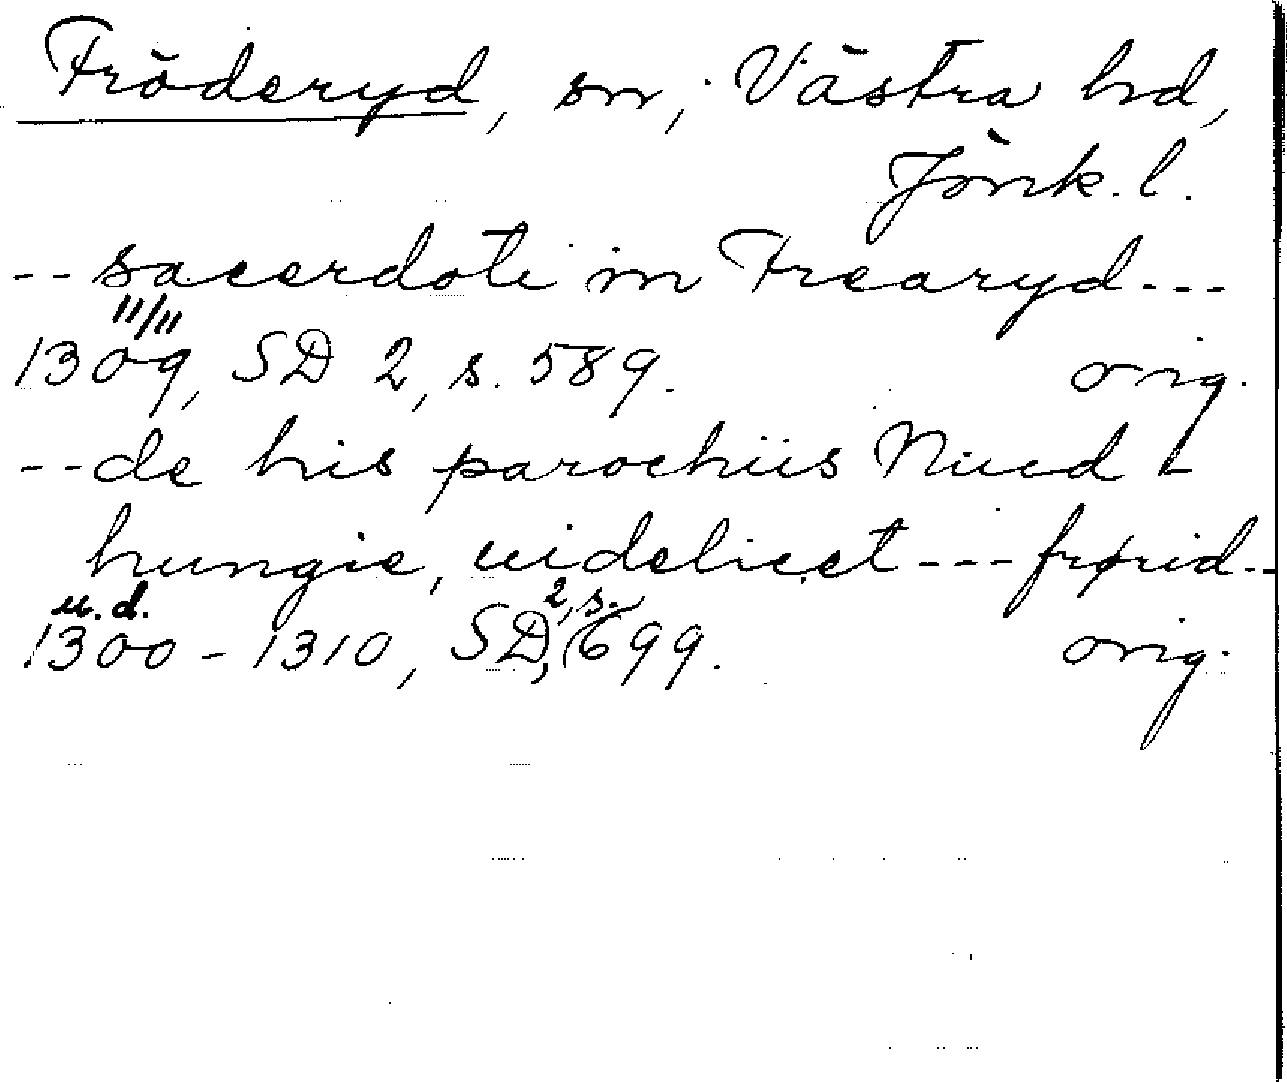 Fröderyd, sn, Västra hd,
Jönk. l.
-- sacerdoti in Frearyd ---
11/11
1309, SD 2, s. 589. orig.
-- de his parochiis Niud-
hungie, uidelicet --- frørid --
u. d.
1300-1310, SD, 2, s. 699. orig.